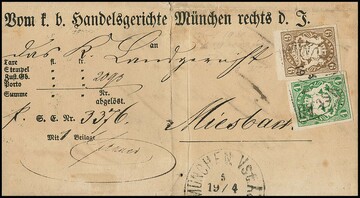 Vom k. b. Handelsgerichte München rechts d. J.
an
das K. Landgericht
Taxe fl. kr.
Stempel
Zust. Gb. 2090
Porto
Summe Nr.
abgelöst.
S. E. Nr. 3376
Miesbach.
Mit 1 Beilage
MÜNCHEN
5
19/4